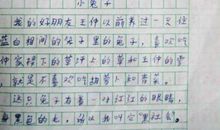 小兔子
我的好朋友王仲以前养过一只
蓝白相间的 子里的兔子，喜欢吃
仲家楼下的草坪上的草和王仲的
，就是不喜欢吃胡萝卜和青菜。
这只兔子有着一对红红的眼睛，
身黑色的毛，所以我叫它"黑红